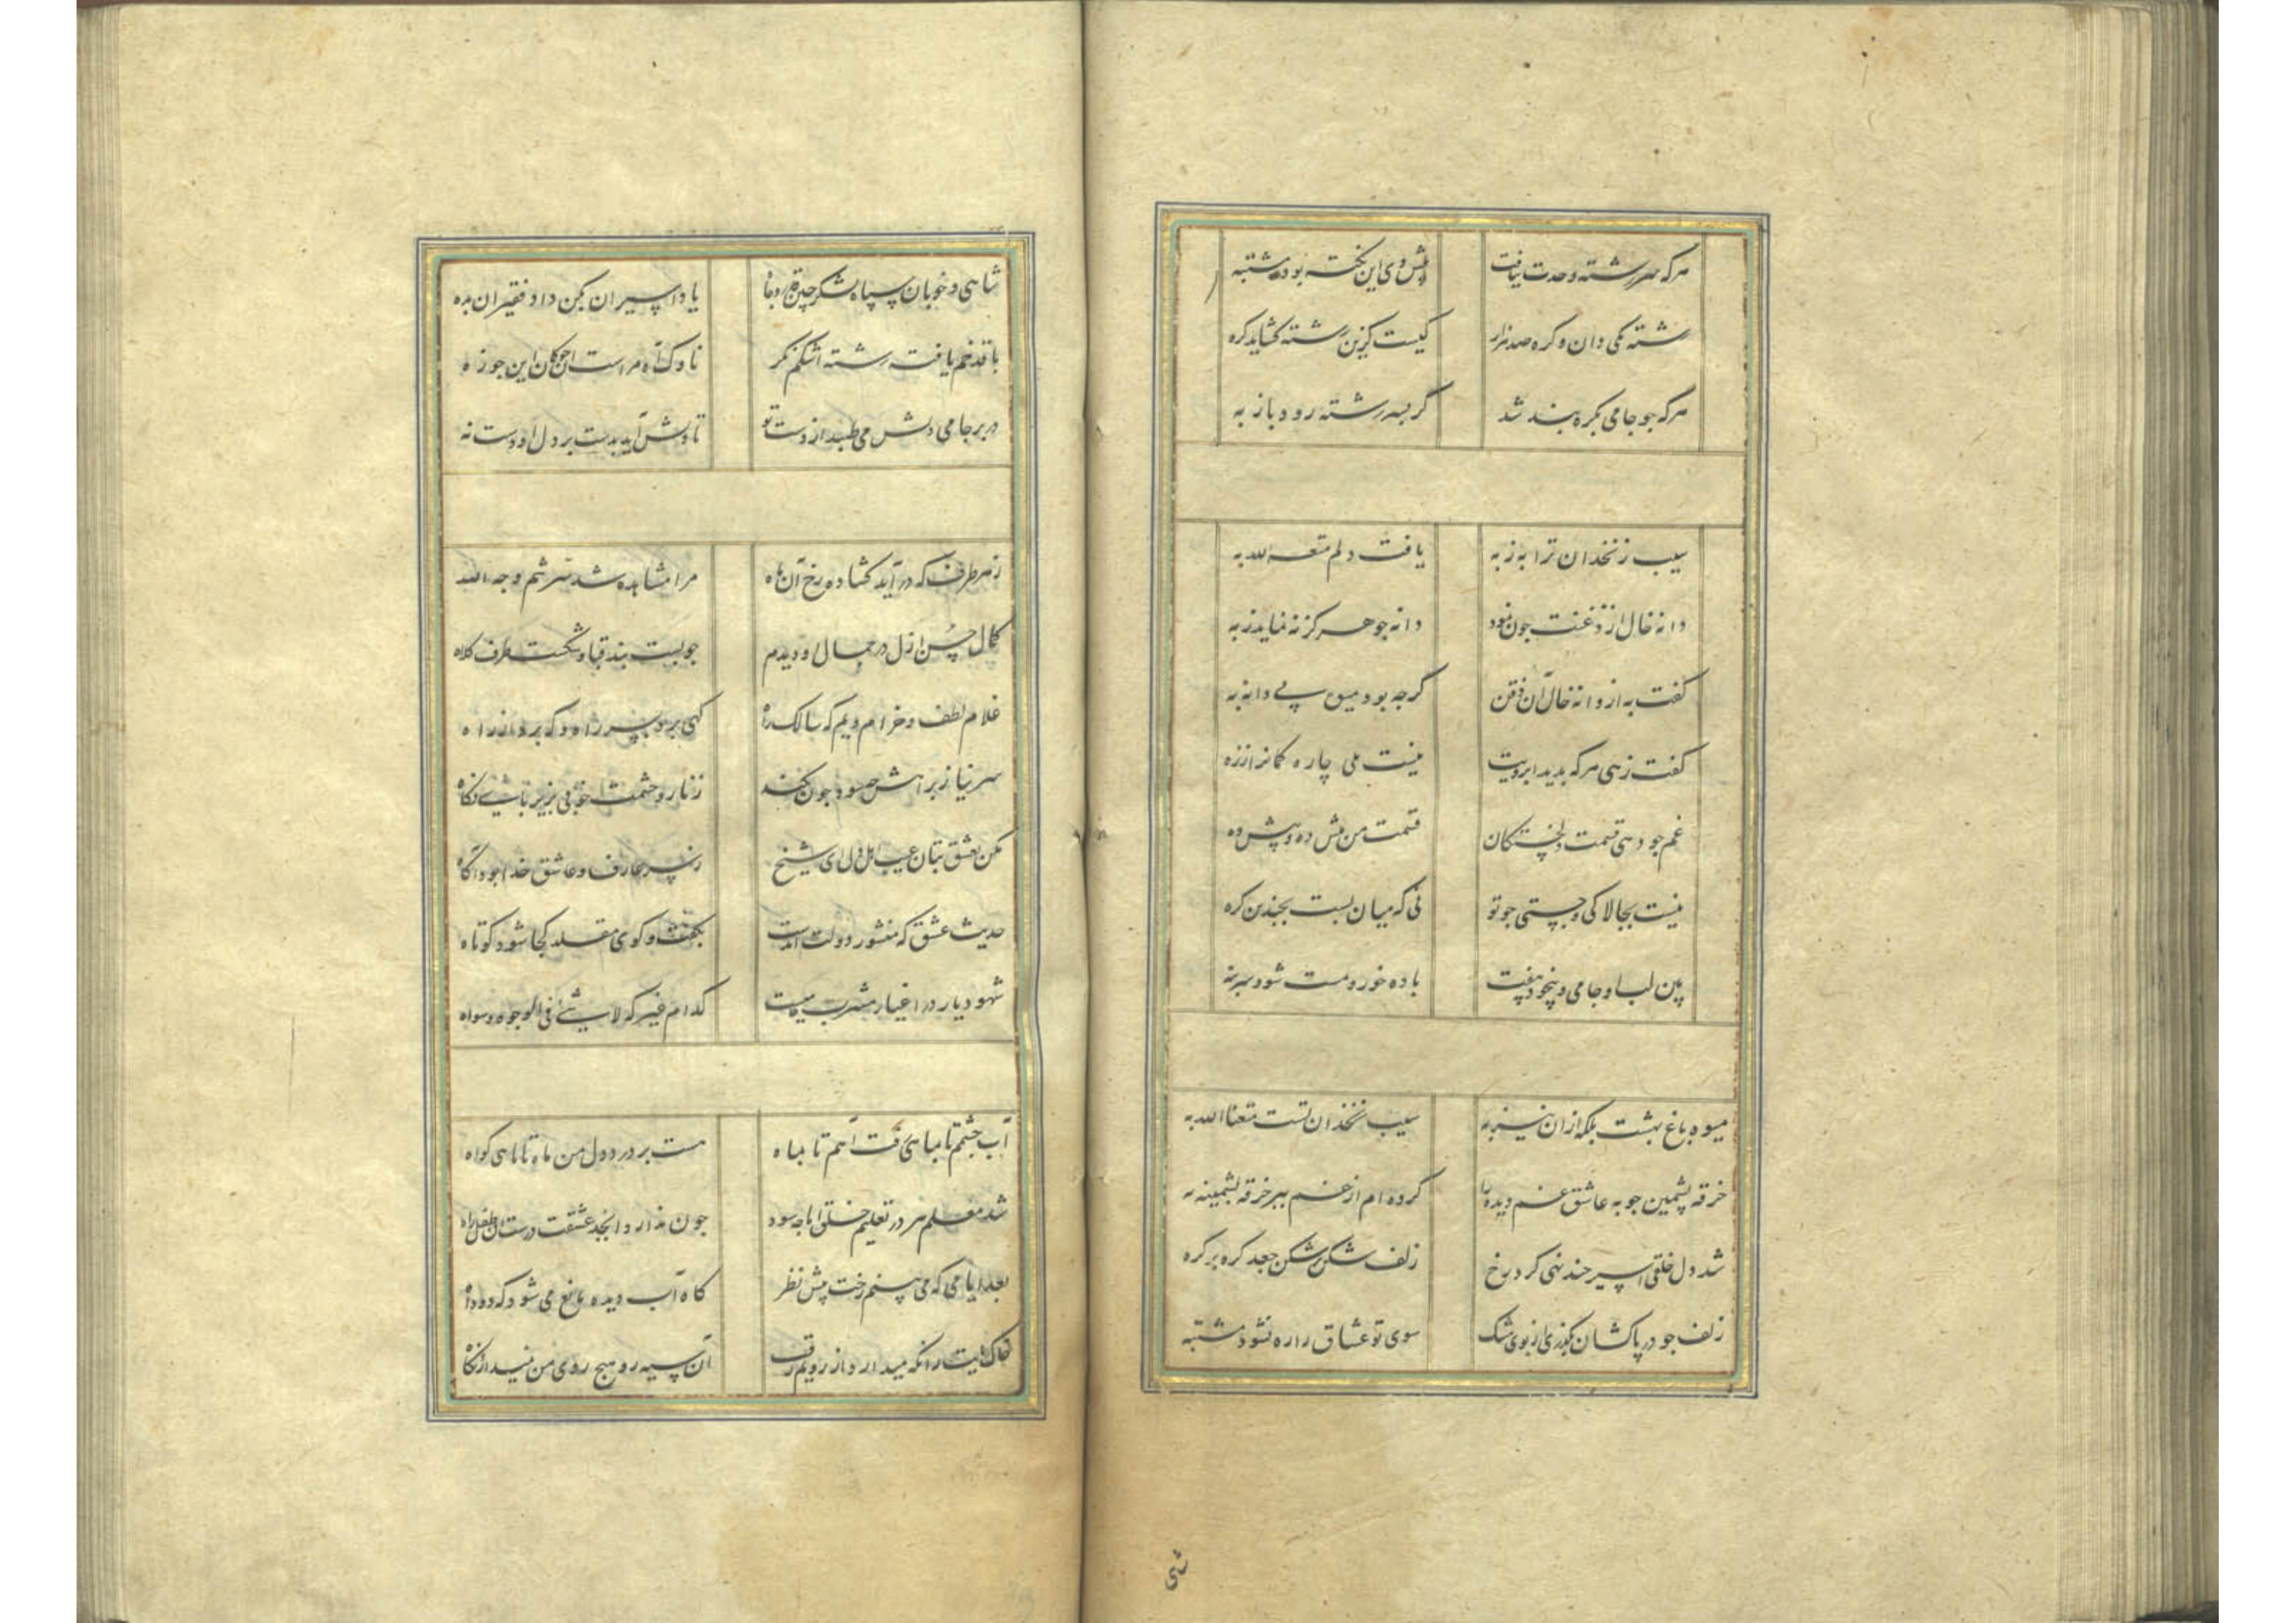 هرکه سررشته وحدت نیافت پیش وی این نکته بود مشتبه
رشته یکی دان و گره صد هزار کیست کزین رشته گشاید گره
هرکه جو جامی بگره بند شد گر بسر رشته رود باز به
سیب زنخدان ترا به ز به یافت دلم متعه الله به
دانه خال از ذقنت جون نمود دانه جو هرگز ننماید ز به
گفت به از دانه خال آن ذقن گرجه بود میوه بی دانه به
گفت زهی هرکه بدید ابرویت نیست بلی چاره کمانرا ز زه
غم جو دهی قسمت دلخستگان قسمت من بیش ده و پیش ده
نیست بجالاکی و جستی جو تو نی که میان بست بجندین گره
بین لب او جامی و بیخود بیفت باده خور و مست شو و سر بنه
میوه باغ بهشت بلکه از آن نیز به سیب زنخدان تست متعنا الله به
خرقه پشمین جو به عاشق غم دیده را کرده ام از غم ببر خرقه پشمینه به
شد دل خلقی اسیر جند نهی کرد رخ زلف شکن بر شکن جعد گره بر گره
زلف جو در پا کشان بگذری از بوی مشک سوی تو عشاق را ره نشود مشتبه
شی
شاهی و خوبان سپاه لشکر یاد اسیران بکن داد فقیران بده
با قد خم یافت رشته اشکم گمر ناوک آه مراست این جو زه
در بر جامی دلش می طپد از دست تو تا دلش آید بدست بر دل او دست نه
ز هر طرف که در آید گشاده رخ آن ماه مرا مشاهده شد سر ثم وجه الله
کمال حسن ازل در جمال او دیدم جو بست بند قبا و شکست طرف کلاه
غلام لطف و خرام ویم که سالک را گهی برد بسر راه و گه برد از راه
سر نیاز براهش حسود جون نگه
مکن بعشق بتان عیب اهل دل ای شیخ ز سر عارف و عاشق خدا بود آگاه
حدیث عشق که منشور دولت ابدست بگفت و گوی مقلد کجا شود کوتاه
شهود یار در اغیار مشرب جامیست کدام غیر که لا شیء فی الوجود سواه
آب چشم تا بماهی رفت آهم تا بماه هست بر درد دل من ماه تا ماهی گواه
شد معلم هر در تعلیم خلق اما جه سود جون ندارد ابجد عشقت درستان طفل راه
بعد ایامی که می بینم رخت پیش نظر گاه آب دیده مانع می شود گه دود آه
خاک پایت را نگه میدارد از رویم رقیب آن سیه رو هیج روی من نمیدارد نگاه